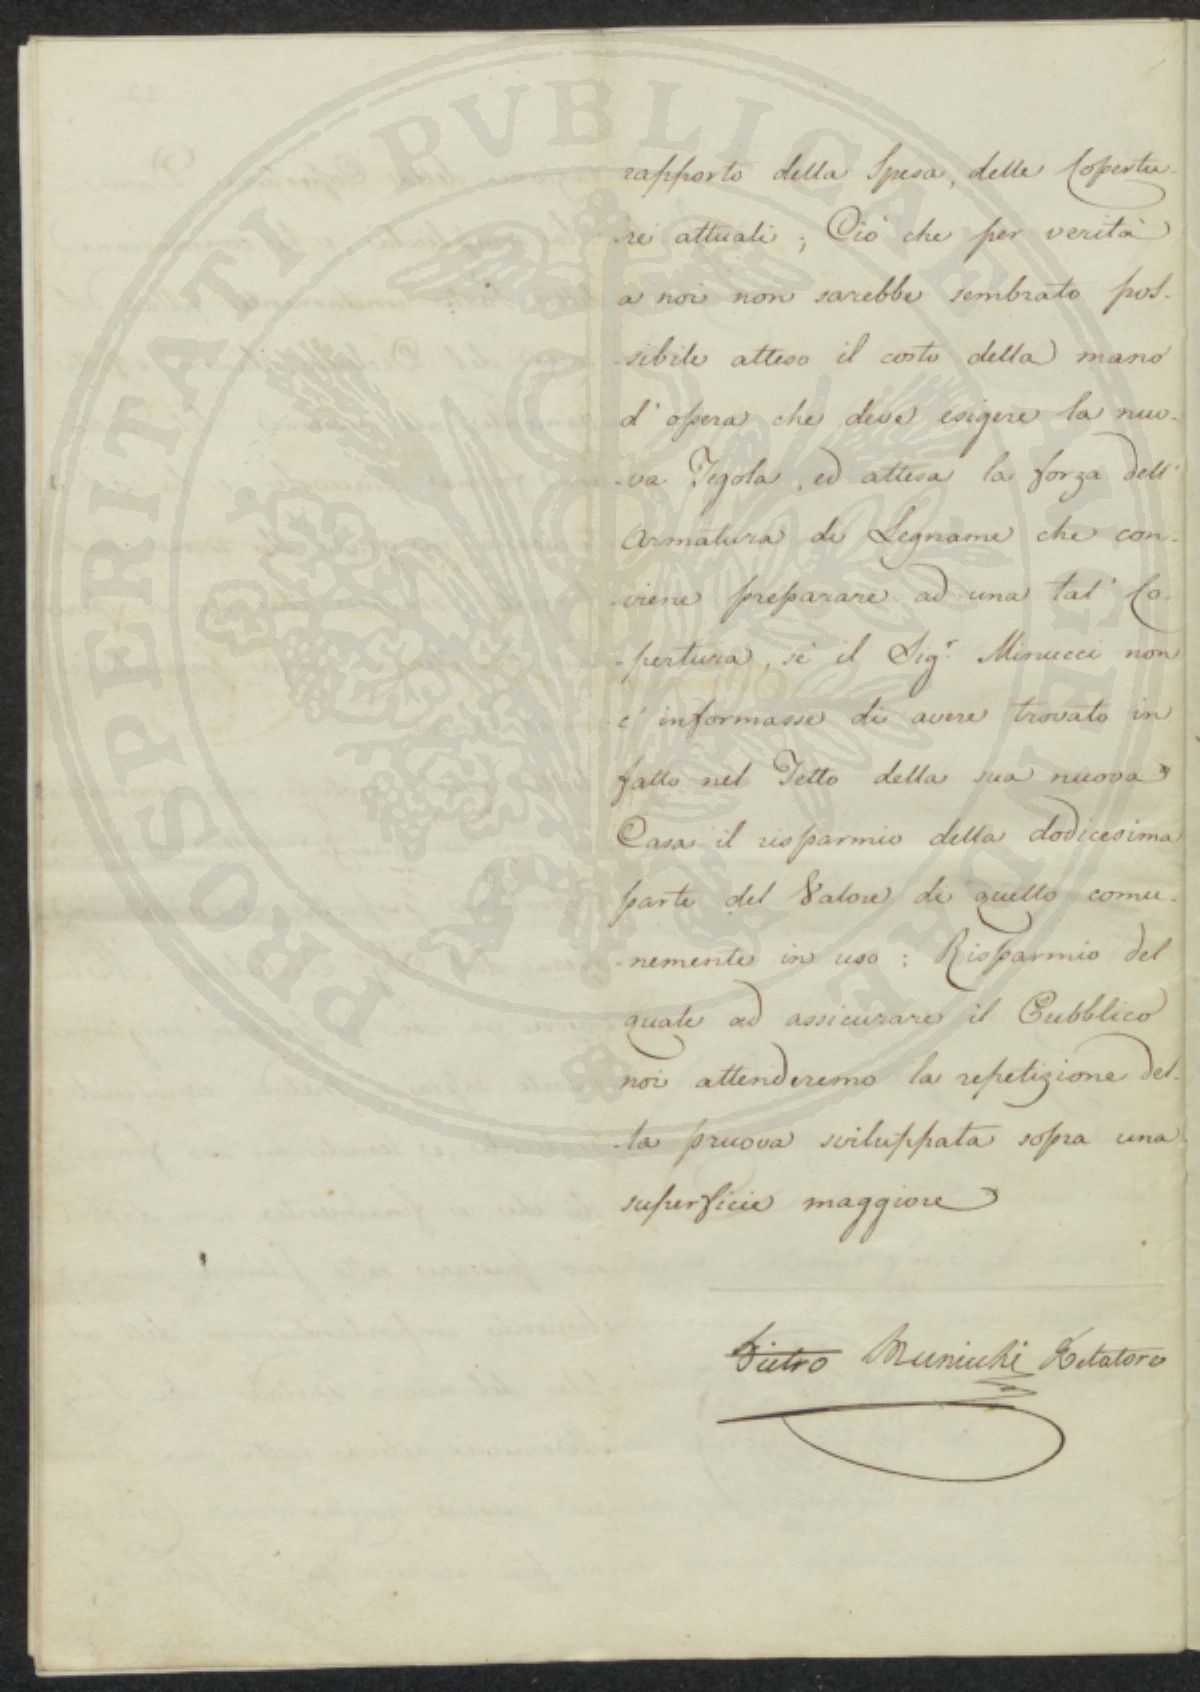 rapporto della Spesa, delle Copertu-
-re attuali; Ciò che per verità
a noi non sarebbe sembrato pos-
-sibile atteso il costo della mano
d'opera che deve esigere la nuo-
-va Tegola, ed attesa la forza dell'
Armatura di Legname che con-
-viene preparare ad una tal' Co-
-pertura, se il Sig.r Minucci non
c'informasse di avere trovato in
fatto nel Tetto della sua nuova
Casa il risparmio della dodicesima
parte del Valore di quello comu-
-nemente in uso: Risparmio del
quale ad assicurare il Pubblico
noi attenderemo la repetizione del-
-la pruova sviluppata sopra una
superficie maggiore
Pietro Municchi Relatore
PROSPERITATI PUBLICAE